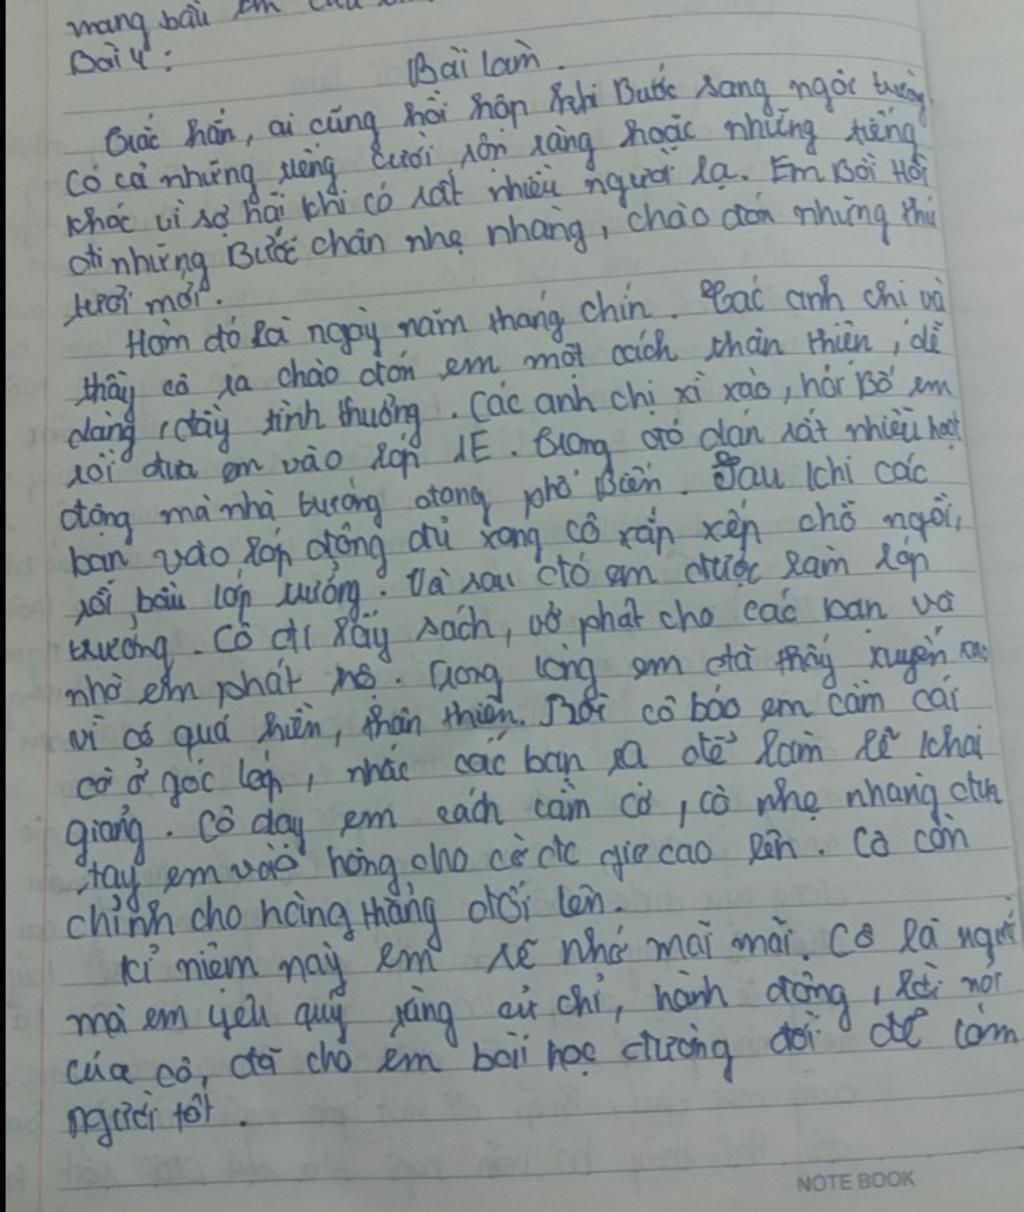 mang bầu em
Bài 4:
Bài làm.
Chắc hẳn, ai cũng hồi hộp khi Bước sang ngôi trường
Có cả những tiếng cười rộn ràng hoặc những tiếng
khóc vì sợ hãi khi có rất nhiều người lạ. Em Bồi Hồi
đi những Bước chân nhẹ nhàng, chào đón những thứ
tươi mới.
Hôm đó là ngày năm tháng chín. Các anh chị và
thầy cô ra chào đón em một cách thân thiện, dễ
dàng, đầy tình thương. Các anh chị xì xào, hỏi Bố em
rồi đưa em vào lớp 1E. Trong đó dán rất nhiều hoạt
động mà nhà trường đang phổ Biến. Sau khi các
bạn vào lớp đông đủ xong cô xắp xếp chỗ ngồi,
rồi bầu lớp trưởng. Và sau đó em được làm lớp
trưởng. Cô đi lấy sách, vở phát cho các bạn và
nhờ em phát hộ. Trong lòng em đã thấy xuyến xao
vì cô quá hiền, thân thiện. Rồi cô bảo em cầm cái
cờ ở góc lớp, nhắc các bạn ra để làm lễ khai
giảng. Cô dạy em cách cầm cờ, cô nhẹ nhàng
tay em vào hông cho cờ giơ cao lên. Cô còn
chỉnh cho hàng thẳng đối lên.
Kỉ niệm này em sẽ nhớ mãi mãi. Cô là người
mà em yêu quý rằng cử chỉ, hành động, lời nói
của cô, đã cho em bài học đường đời để làm
người tốt.
NOTE BOOK